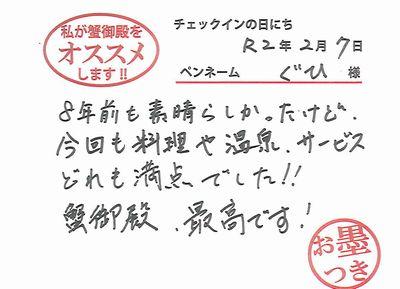 私が蟹御殿を
オススメ
します!!
チェックインの日にち
R2年2月7日
ペンネーム ぐひ 様
8年前も素晴らしかったけど、
今回も料理や温泉、サービス
どれも満点でした!!
蟹御殿、最高です!
お墨
つき